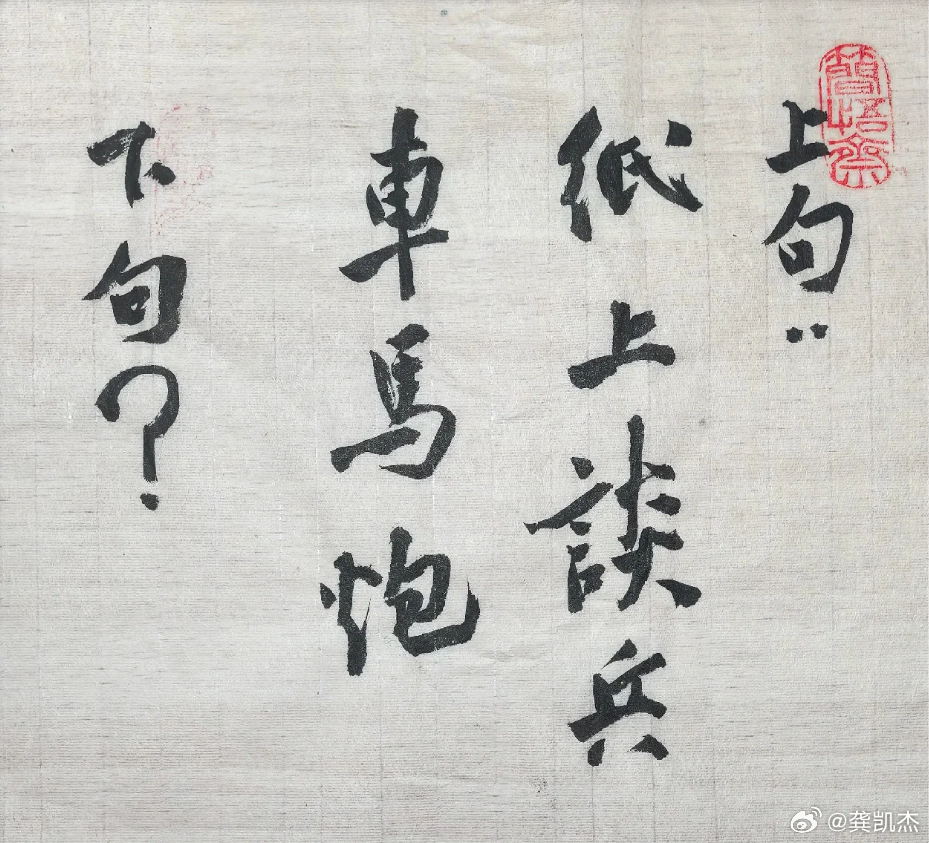 上句：
紙上談兵
車馬炮
下句？
@龚凯杰